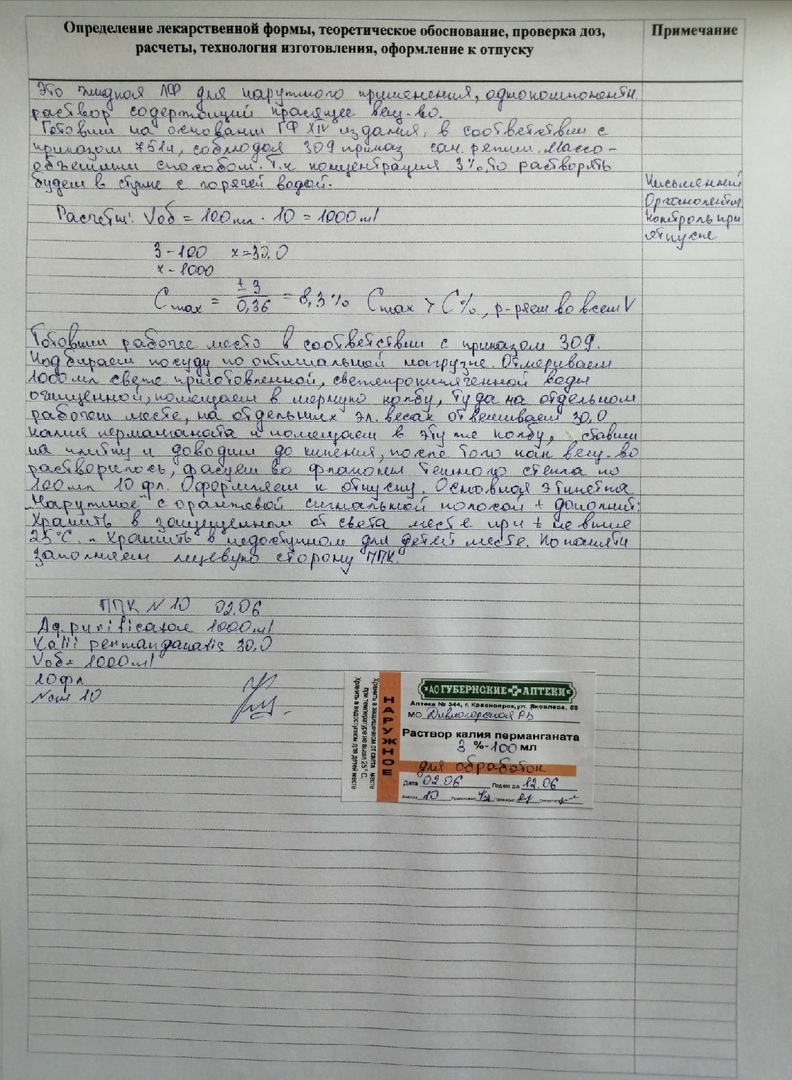 Определение лекарственной формы, теоретическое обоснование, проверка доз,
расчеты, технология изготовления, оформление к отпуску
Примечание
Это жидкая ЛФ для наружного применения, однокомпонентн.
раствор содержащий красящее вещ-во.
Готовим на основании ГФ XIV издания, в соответствии с
приказом 751н, соблюдая 309 приказ сан. режим. Массо-
объемным способом. Т.к концентрация 3%, то растворять
будем в ступке с горячей водой.
Письменный
Органолептич.
Контроль при
отпуске
Расчеты: Vоб = 100мл · 10 = 1000ml
3 - 100 x = 30,0
x - 1000
Cmax = ±3 / 0,36 = 8,3% Cmax > C%, р-ряем во всем V
Готовим рабочее место в соответствии с приказом 309.
Подбираем посуду по оптимальной нагрузке. Отмериваем
1000 мл свеже приготовленной, свежепрокипяченной воды
очищенной, помещаем в мерную колбу, туда на отдельном
рабочем месте, на отдельных эл. весах отвешиваем 30,0
калия перманганата и помещаем в эту же колбу, ставим
на плитку и доводим до кипения, после того как вещ-во
растворилось, фасуем во флаконы темного стекла по
100мл 10 фл. Оформляем к отпуску. Основная этикетка
"Наружное" с оранжевой сигнальной полосой + дополнит:
Хранить в защищенном от света месте при t не выше
25°C. - Хранить в недоступном для детей месте. По памяти
заполняем лицевую сторону ППК.
ППК N 10 02.06
Aq. purificatae 1000ml
Kalii permanganatis 30,0
Vоб = 1000ml
10 фл
Nсит 10
Хранить в защищенном от света месте
при температуре не выше 25°C.
Хранить в недоступном для детей месте
НАРУЖНОЕ
АО ГУБЕРНСКИЕ АПТЕКИ
Аптека № 344, г. Красноярск, ул. Яковлева, 55
МО Дивногорская РБ
Раствор калия перманганата
3 %-100 мл
для обработок
Дата 02.06 Годен до 12.06
10